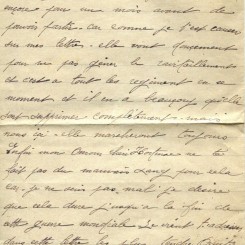 encore pas un mois avant de
pouvoir partir. car comme je t'ai causer
sur mes lettre. elle vont
pour ne pas gêner le ravitaillement
et c'est a tout les regiment en ce
moment et il en a beaucoup qu'elle
sont supprimer complètement. mais
nous ici. elle marcheront toujours
Enfin mon Amour chéri Hortense ne te
fait pas du mauvais sang pour cela
car je ne suis pas mal je désire
que cela dure j'usqu'a la fin de
cette guerre mondiale. Je vient t'adresser
dans cette lettre les plus